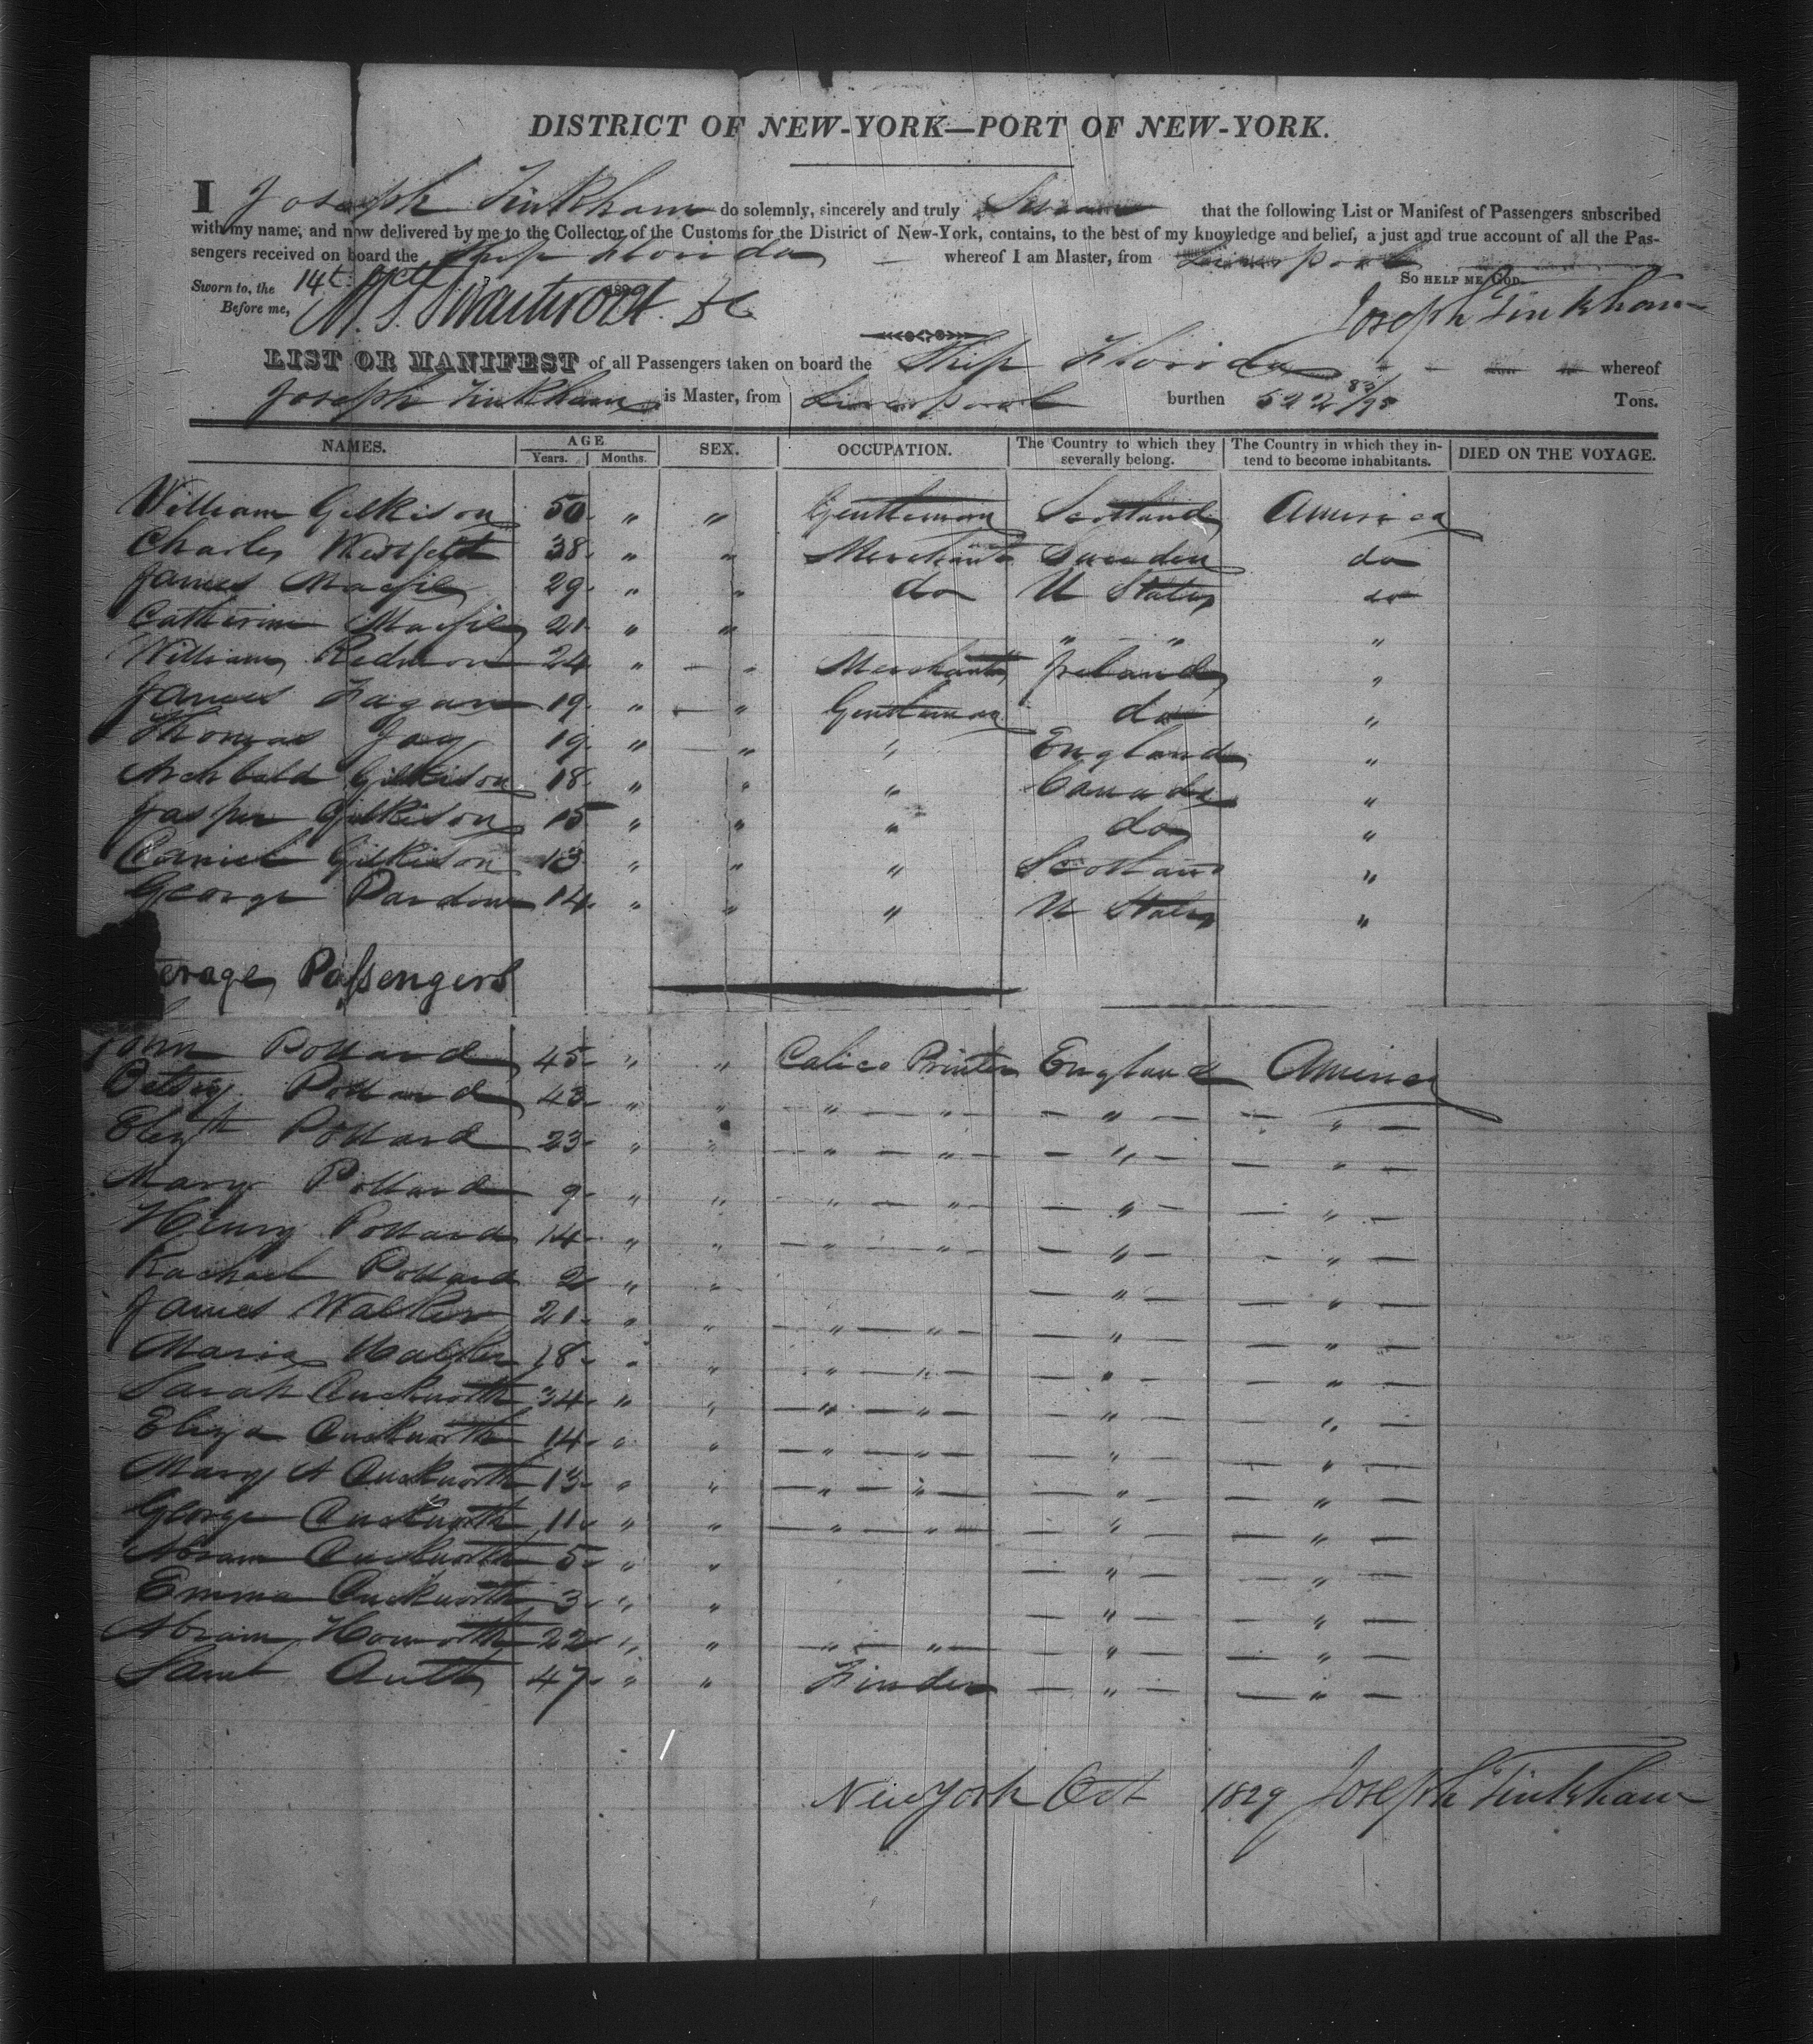 DISTRICT OF NEW-YORK—PORT OF NEW-YORK.
I Joseph Tinkham do solemnly, sincerely and truly Swear that the following List or Manifest of Passengers subscribed
with my name, and now delivered by me to the Collector of the Customs for the District of New-York, contains, to the best of my knowledge and belief, a just and true account of all the Pas-
sengers received on board the Ship Florida whereof I am Master, from Liverpool
Sworn to, the 14t. Octr SO HELP ME GOD.
Before me, Joseph Tinkham
LIST OR MANIFEST of all Passengers taken on board the Ship Florida whereof
Joseph Tinkham is Master, from Liverpool burthen 522 83/95 Tons.
NAMES. AGE Years. Months. SEX. OCCUPATION. The Country to which they severally belong. The Country in which they in-tend to become inhabitants. DIED ON THE VOYAGE.
William Gilkison 50 " " Gentleman Scotland America
Charles Westfeldt 38 " " Merchant Sweden do
James Macfie 29 " " do U States do
Catherine Macfie 21 " " " " "
William Redmon 24 " — " Merchant Ireland "
James Fagan 19 " — " Gentleman do "
Thomas Jay 19 " — " " England "
Archbald Gilkison 18 " " " Canada "
Jasper Gilkison 15 " " " do "
Daniel Gilkison 13 " " " Scotland "
George Pardow 14 " " " U States "
erage Passengers
John Pollard 45 " " Calico Printer England America
Betsy Pollard 43 " " — " — " — — " — — " —
Elizth Pollard 23 " " — " — " — — " — — " —
Mary Pollard 9 " " — " — " — — " — — " —
Henry Pollard 14 " " — " — " — — " — — " —
Rachael Pollard 2 " " — " — — " —
James Walker 21 " " — " — " — — " — — " —
Maria Walker 18 " " — " — " — — " — — " —
Sarah Cuckworth 34 " " — " — " — — " — — " —
Eliza Cuckworth 14 " " — " — " — — " — — " —
Mary A Cuckworth 13 " " — " — " — — " — — " —
George Cuckworth 11 " " — " — " — — " — — " —
Abram Cuckworth 5 " " — " — — " —
Emma Cuckworth 3 " " — " — — " —
Abram Howorth 22 " " — " — " — — " — — " —
Saml Ault 47 " " — " — — " —
New York Oct 1829 Joseph Tinkham